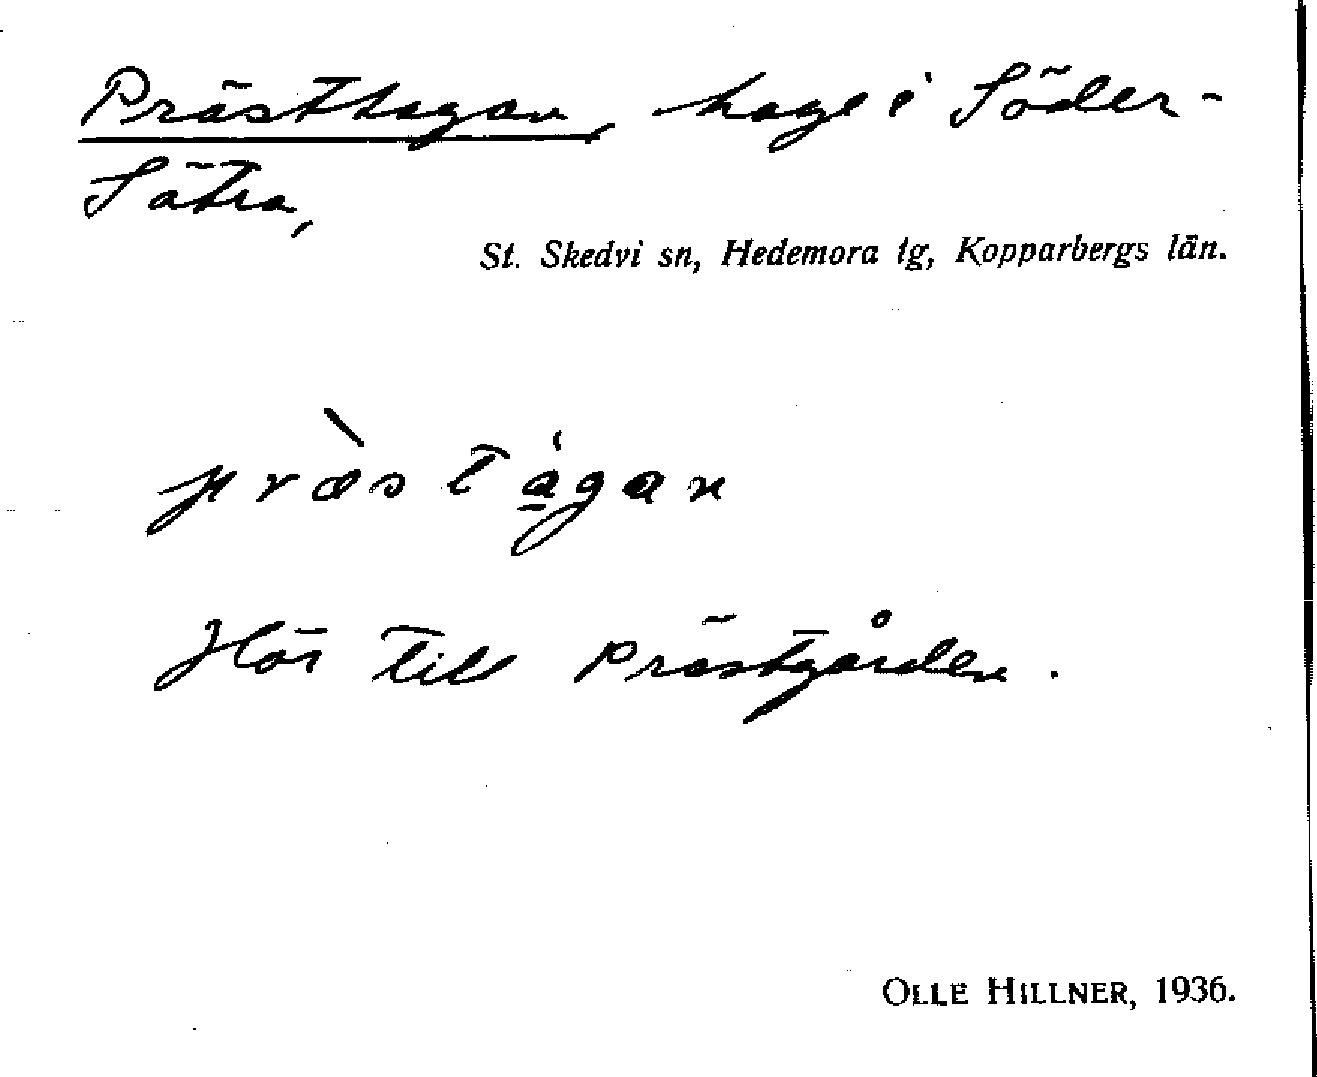 Prästhagan, hage i Söder-
Sätra,
St. Skedvi sn, Hedemora tg, Kopparbergs län.
præ̀stág̣an
Hör till Prästgården.
OLLE HILLNER, 1936.